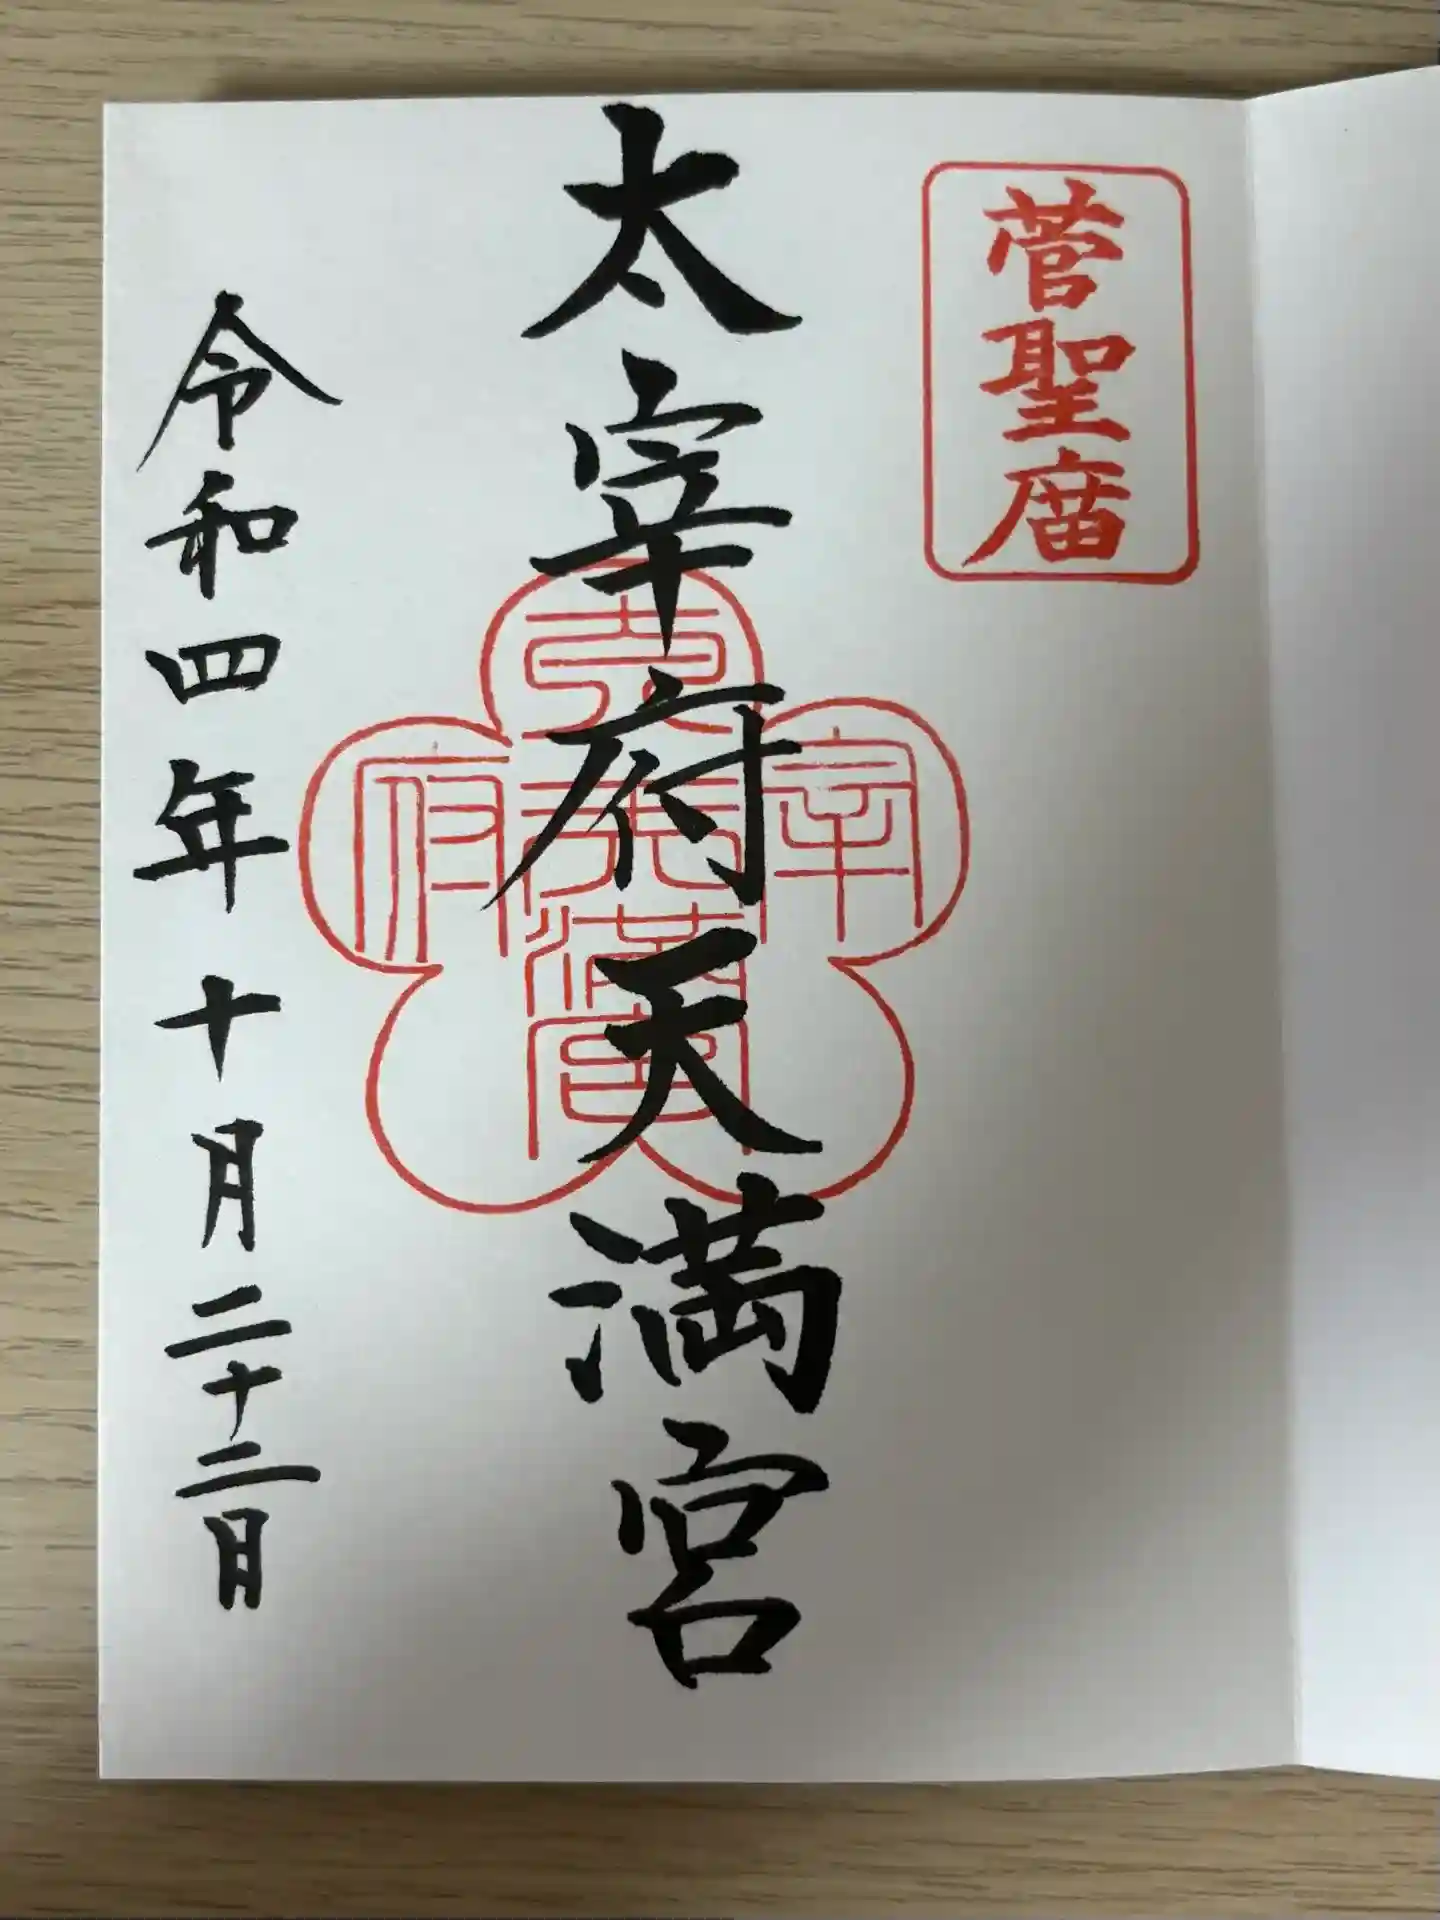 菅聖庿
太宰府天満宮
宰
府
満
宮
令和四年十月二十二日